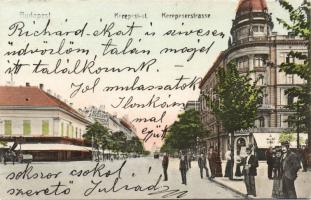 Budapest
Kerepesi-út. Kerepeserstrasse
Richárd-ékat is szivesen
üdvözlöm, talán majd
itt találkozunk.
Jól mulassatok
Ilonkám
sokszor csókol
szerető